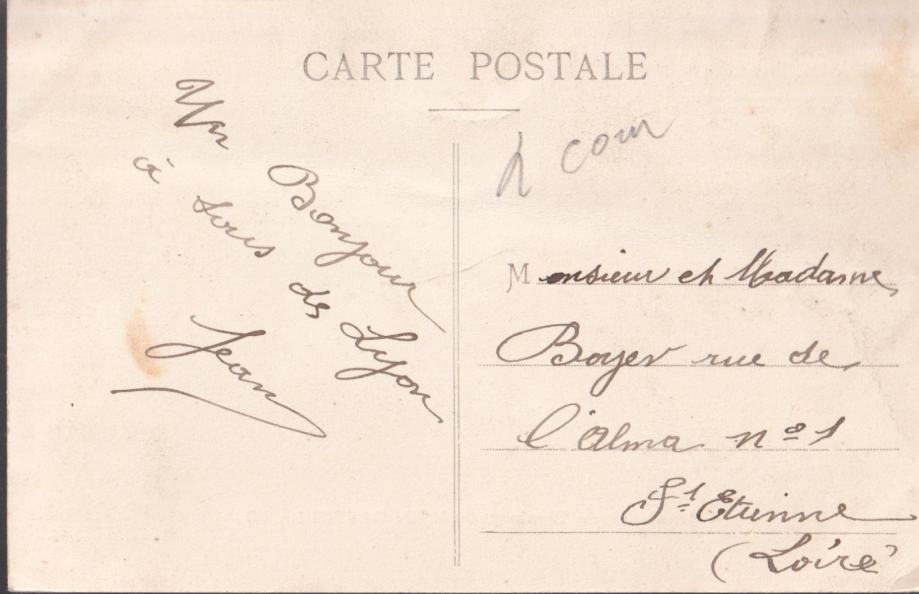 CARTE POSTALE
Un Bonjour
à tous de Lyon
Jean
cour
Monsieur et Madame
Boyer rue de
l'Alma nº 1
St Etienne
(Loire)